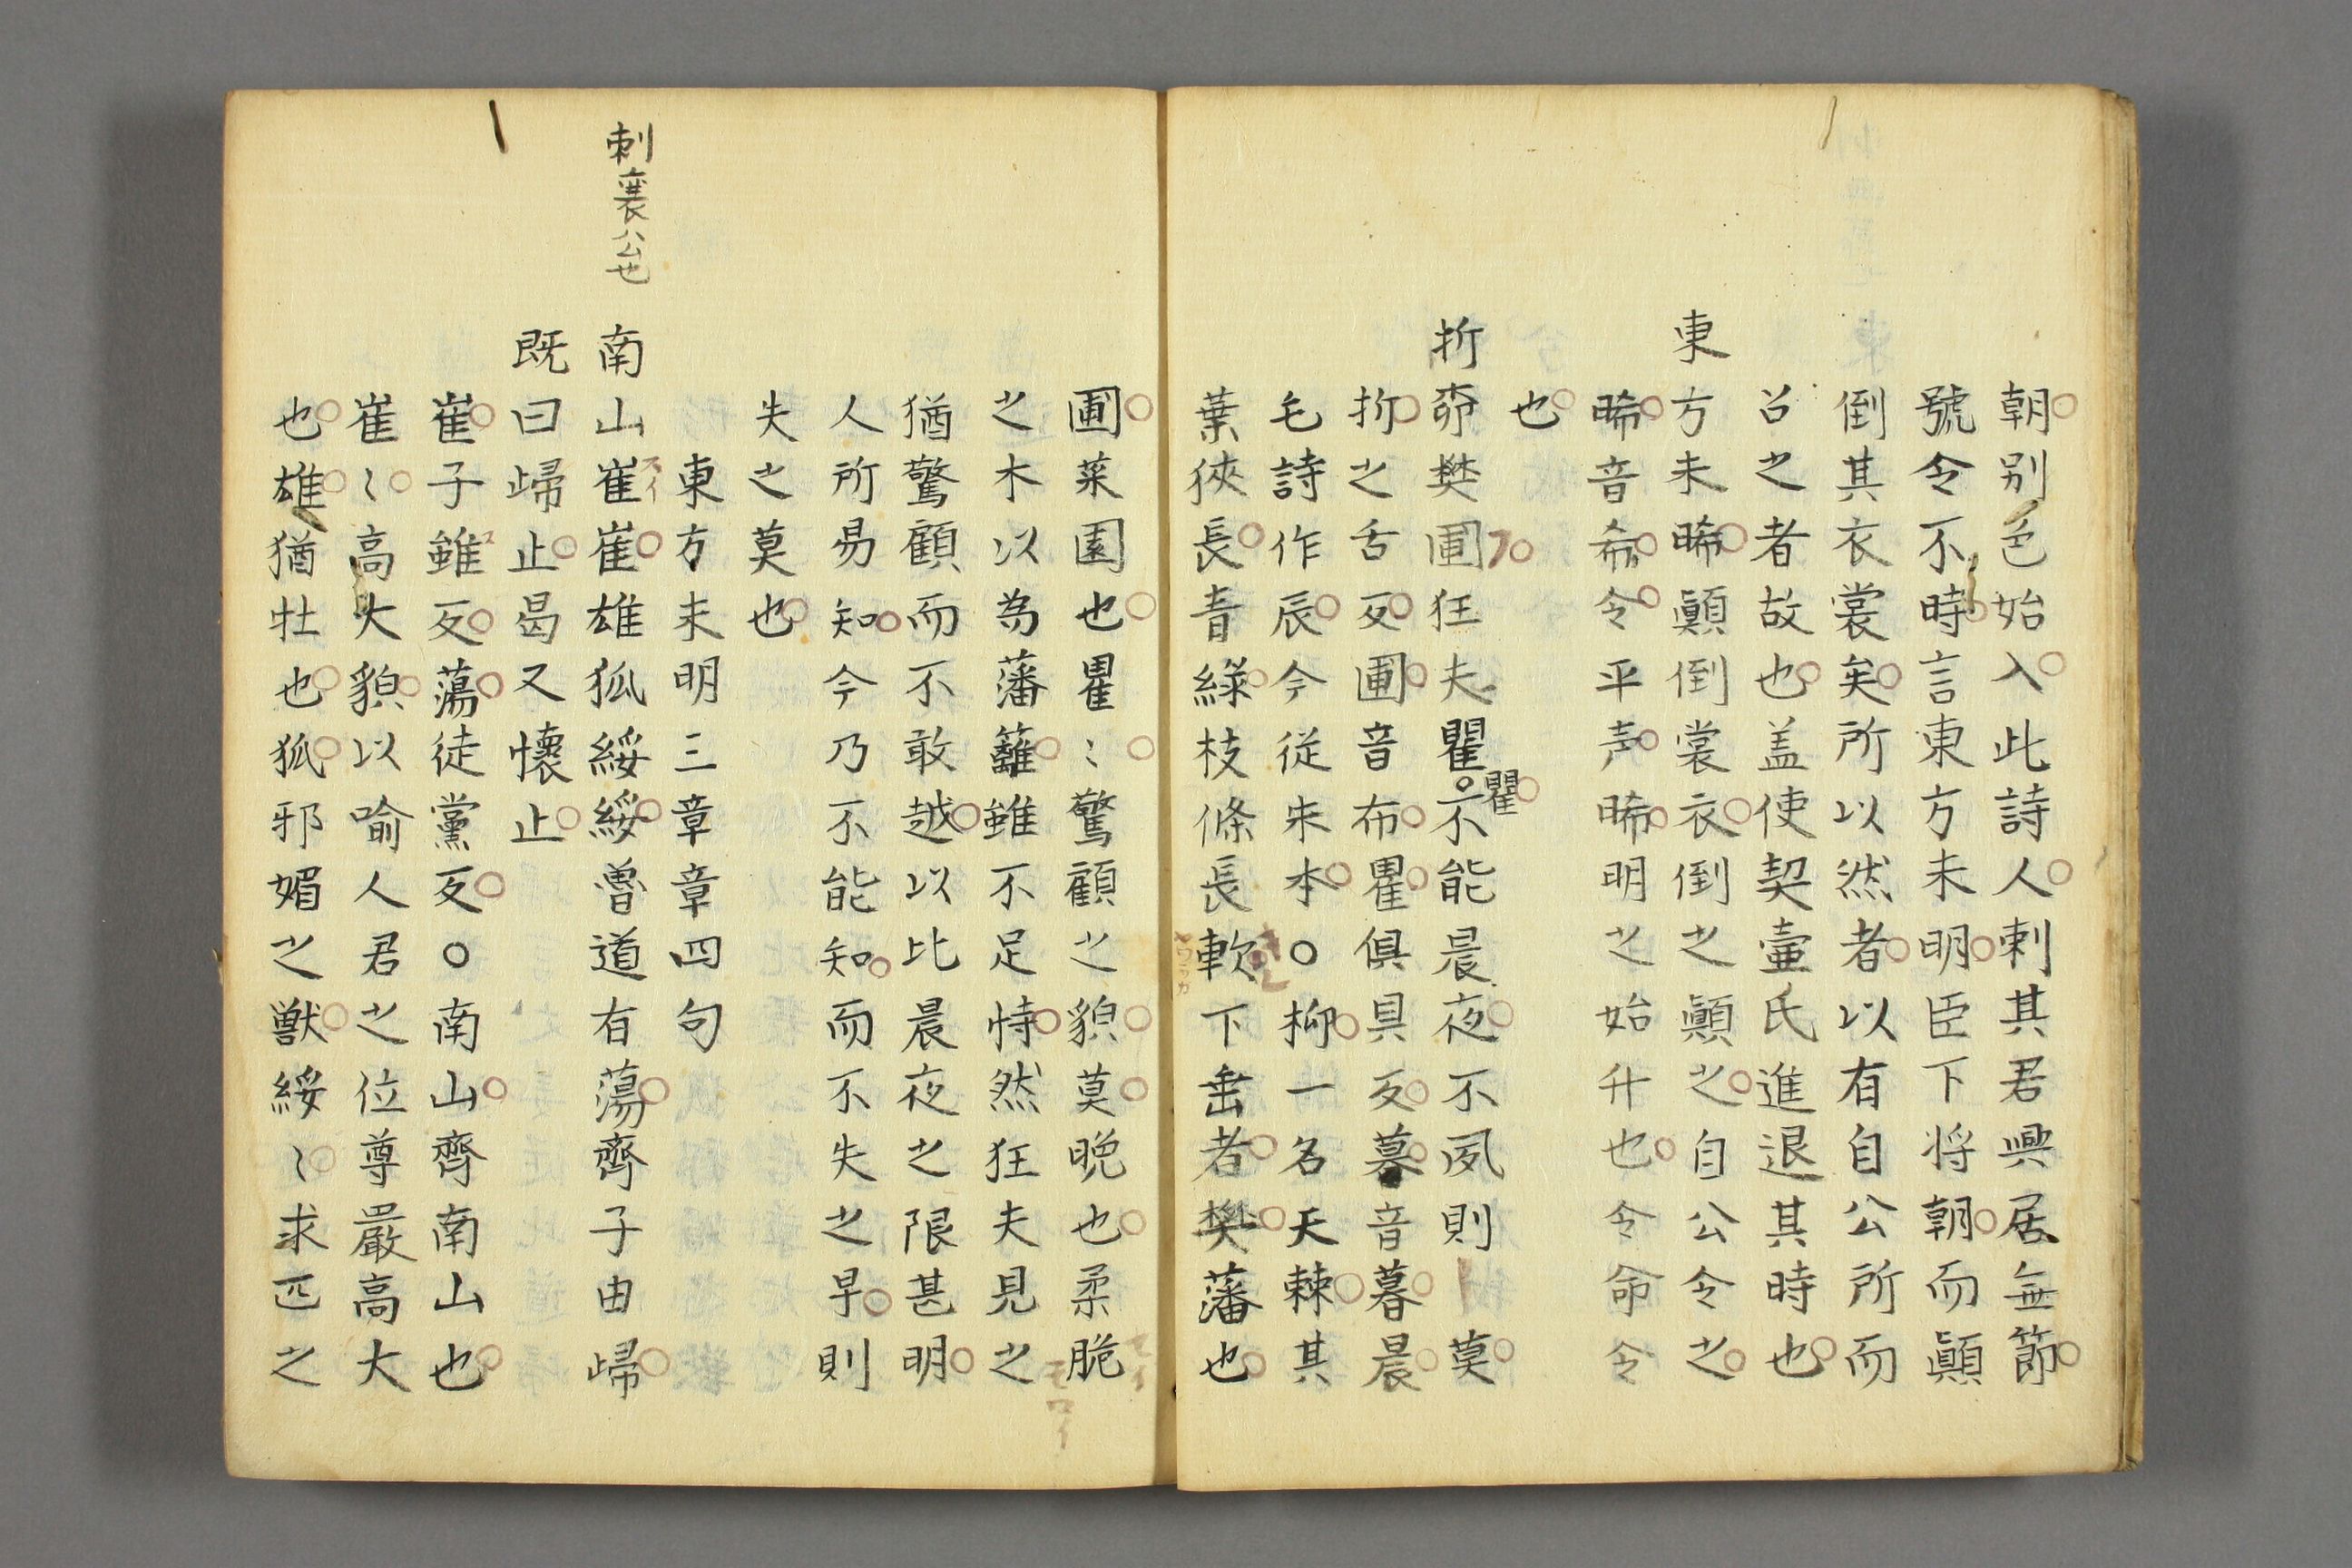 朝别色始入此詩人刺其君興居無節
號令不時言東方未明臣下将朝而顛
倒其衣裳矣所以然者以有自公所而
召之者故也盖使契壷氏進退其時也
東方未晞顛倒裳衣倒之顛之自公令之
晞音希令平声晞明之始升也令命令
也
折桺樊圃狂夫瞿瞿不能晨夜不夙則莫
折之舌反圃音布瞿俱具反莫音暮晨
毛詩作辰今従朱本〇柳一名天棘其
葉狹長青緑枝條長軟下垂者樊藩也
圃菜園也瞿〻驚顧之貌莫晩也柔脆
之木以為藩籬雖不足恃然狂夫見之
猶驚顧而不敢越以比晨夜之限甚明
人所易知今乃不能知而不失之早則
失之莫也
東方未明三章章四句
刺襄公也
南山崔崔雄狐綏綏魯道有蕩齊子由歸
既曰歸止曷又懐止
崔子雖反蕩徒黨反〇南山齊南山也
崔〻高大貌以喻人君之位尊嚴高大
也雄猶牡也狐邪媚之獣綏〻求匹之